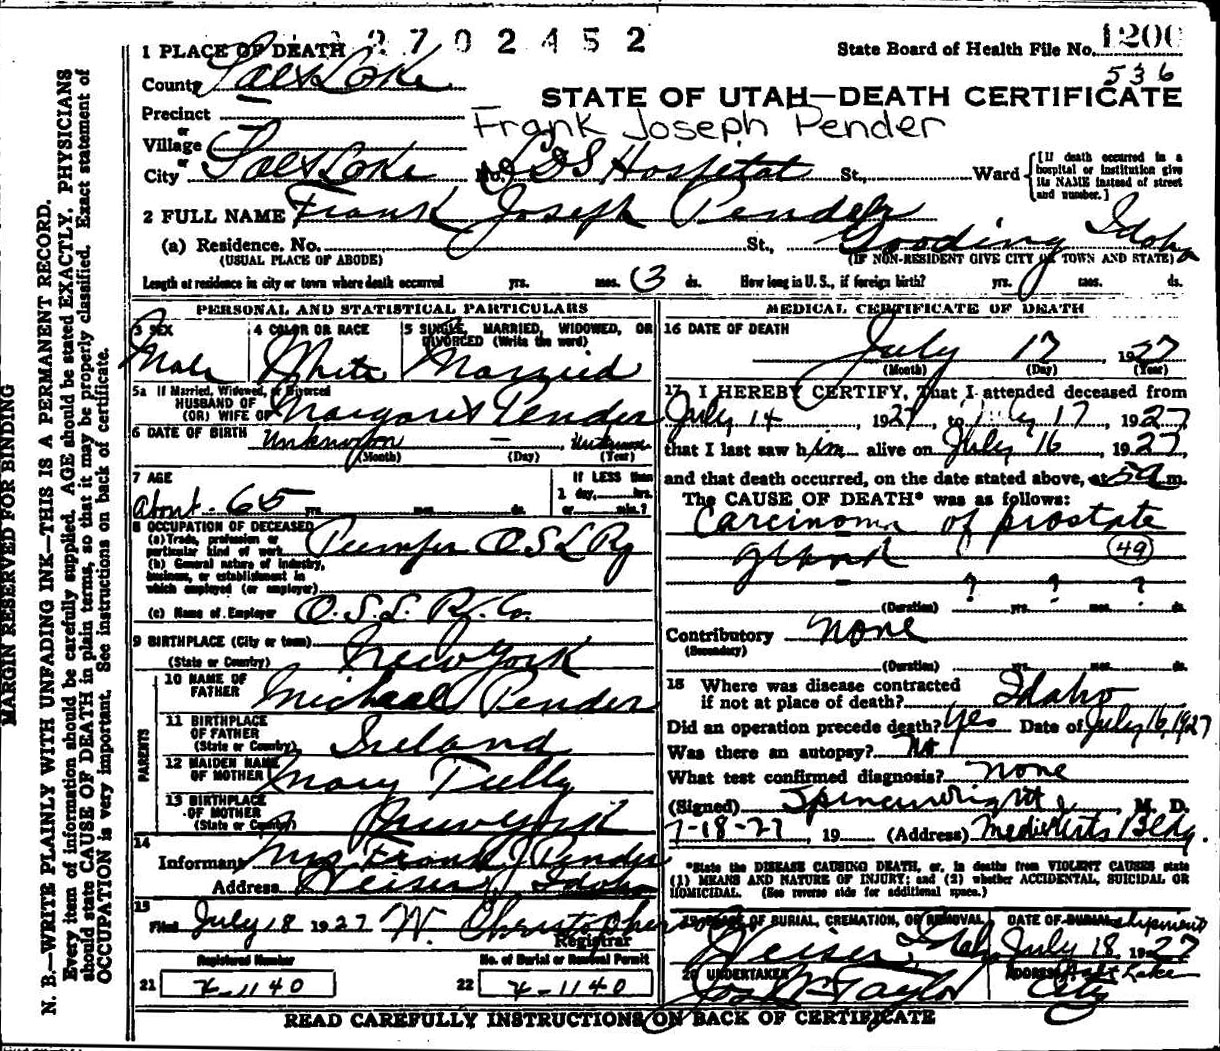 MARGIN RESERVED FOR BINDING
N. B.—WRITE PLAINLY WITH UNFADING INK—THIS IS A PERMANENT RECORD.
Every item of information should be carefully supplied. AGE should be stated EXACTLY. PHYSICIANS
should state CAUSE OF DEATH in plain terms, so that it may be properly classified. Exact statement of
OCCUPATION is very important. See instructions on back of certificate.
2702452
State Board of Health File No. 1200
536
1 PLACE OF DEATH
County Salt Lake
STATE OF UTAH—DEATH CERTIFICATE
Precinct
Frank Joseph Pender
or
Village
or
City Salt Lake No. LDS Hospital St., Ward
[If death occurred in a
hospital or institution give
its NAME instead of street
and number.]
2 FULL NAME Frank Joseph Pender
(a) Residence. No. St., Gooding Idaho
(USUAL PLACE OF ABODE) (IF NON-RESIDENT GIVE CITY OR TOWN AND STATE)
Length of residence in city or town where death occurred yrs. mos. 3 ds. How long in U. S., if foreign birth? yrs. mos. ds.
PERSONAL AND STATISTICAL PARTICULARS
3 SEX Male
4 COLOR OR RACE White
5 SINGLE, MARRIED, WIDOWED, OR
DIVORCED (Write the word)
Married
5a If Married, Widowed, or Divorced
HUSBAND OF
(OR) WIFE OF Margaret Pender
6 DATE OF BIRTH Unknown — Unknown
(Month) (Day) (Year)
7 AGE
About 65 yrs. mos. ds.
If LESS than
1 day, hrs.
or min.?
8 OCCUPATION OF DECEASED
(a) Trade, profession or
particular kind of work Pumper O S L Ry
(b) General nature of industry,
business, or establishment in
which employed (or employer)
(c) Name of Employer O. S. L. Ry. Co.
9 BIRTHPLACE (City or town)
(State or Country) New York
PARENTS
10 NAME OF
FATHER Michael Pender
11 BIRTHPLACE
OF FATHER
(State or Country) Ireland
12 MAIDEN NAME
OF MOTHER Mary Tully
13 BIRTHPLACE
OF MOTHER
(State or Country) New York
14
Informant Mrs Frank J Pender
Address Weiser, Idaho
15
Filed July 18 1927 W. Christopherson
Registrar
Registered Number
21 x-1140
No. of Burial or Removal Permit
22 x-1140
MEDICAL CERTIFICATE OF DEATH
16 DATE OF DEATH
July 17, 1927
(Month) (Day) (Year)
17 I HEREBY CERTIFY, That I attended deceased from
July 14, 1927, to July 17, 1927,
that I last saw him alive on July 16, 1927,
and that death occurred, on the date stated above, at 5 a m.
The CAUSE OF DEATH* was as follows:
Carcinoma of prostate
gland (49)
? ? ?
(Duration) yrs. mos. ds.
Contributory none
(Secondary)
(Duration) yrs. mos. ds.
18 Where was disease contracted
if not at place of death? Idaho
Did an operation precede death? Yes Date of July 16, 1927
Was there an autopsy? No
What test confirmed diagnosis? none
(Signed) Spencer Wright, M. D.
7-18-27, 19 (Address) Medic Arts Bldg.
*State the DISEASE CAUSING DEATH, or, in deaths from VIOLENT CAUSES state
(1) MEANS AND NATURE OF INJURY; and (2) whether ACCIDENTAL, SUICIDAL OR
HOMICIDAL. (See reverse side for additional space.)
19 PLACE OF BURIAL, CREMATION, OR REMOVAL
Weiser, Idaho
DATE OF BURIAL shipment
July 18 1927
20 UNDERTAKER
Jos Wm Taylor
ADDRESS Salt Lake
City
READ CAREFULLY INSTRUCTIONS ON BACK OF CERTIFICATE